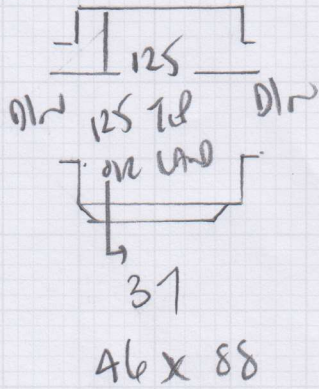 125
DIN 125 TOP DIN
OVR LAND
37
46 x 88